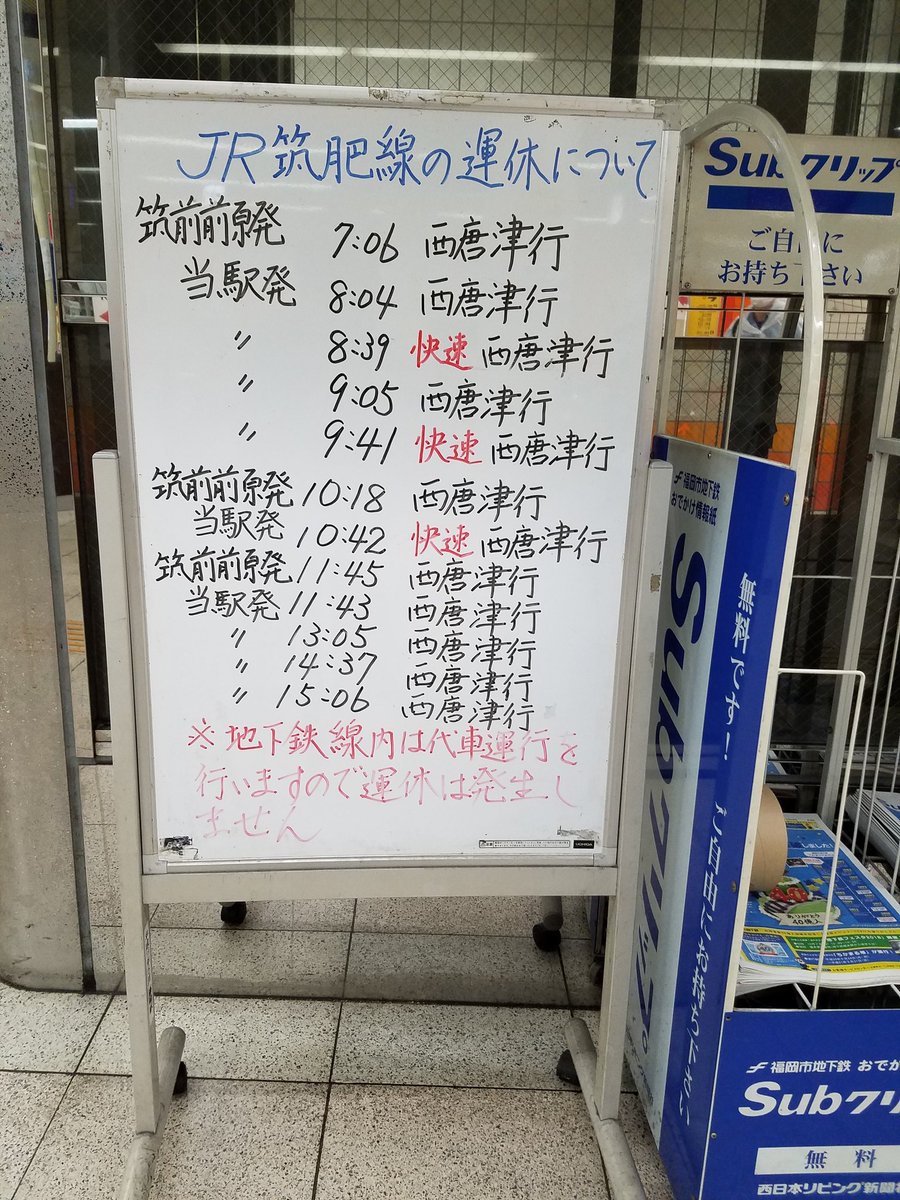 JR筑肥線の運休について
筑前前原発 7:06 西唐津行
当駅発 8:04 西唐津行
〃 8:39 快速 西唐津行
〃 9:05 西唐津行
〃 9:41 快速 西唐津行
筑前前原発 10:18 西唐津行
当駅発 10:42 快速 西唐津行
筑前前原発 11:45 西唐津行
当駅発 11:43 西唐津行
〃 13:05 西唐津行
〃 14:37 西唐津行
〃 15:06 西唐津行
※地下鉄線内は代車運行を
行いますので運休は発生し
ません
UCHIDA
Subクリップ
ご自由に
お持ち下さい
福岡市地下鉄
おでかけ情報紙
Subクリップ
無料です!! ご自由にお持ち下さい
ありがとう
40億人
福岡市地下鉄 おでか
Subクリ
無料
西日本リビング新聞